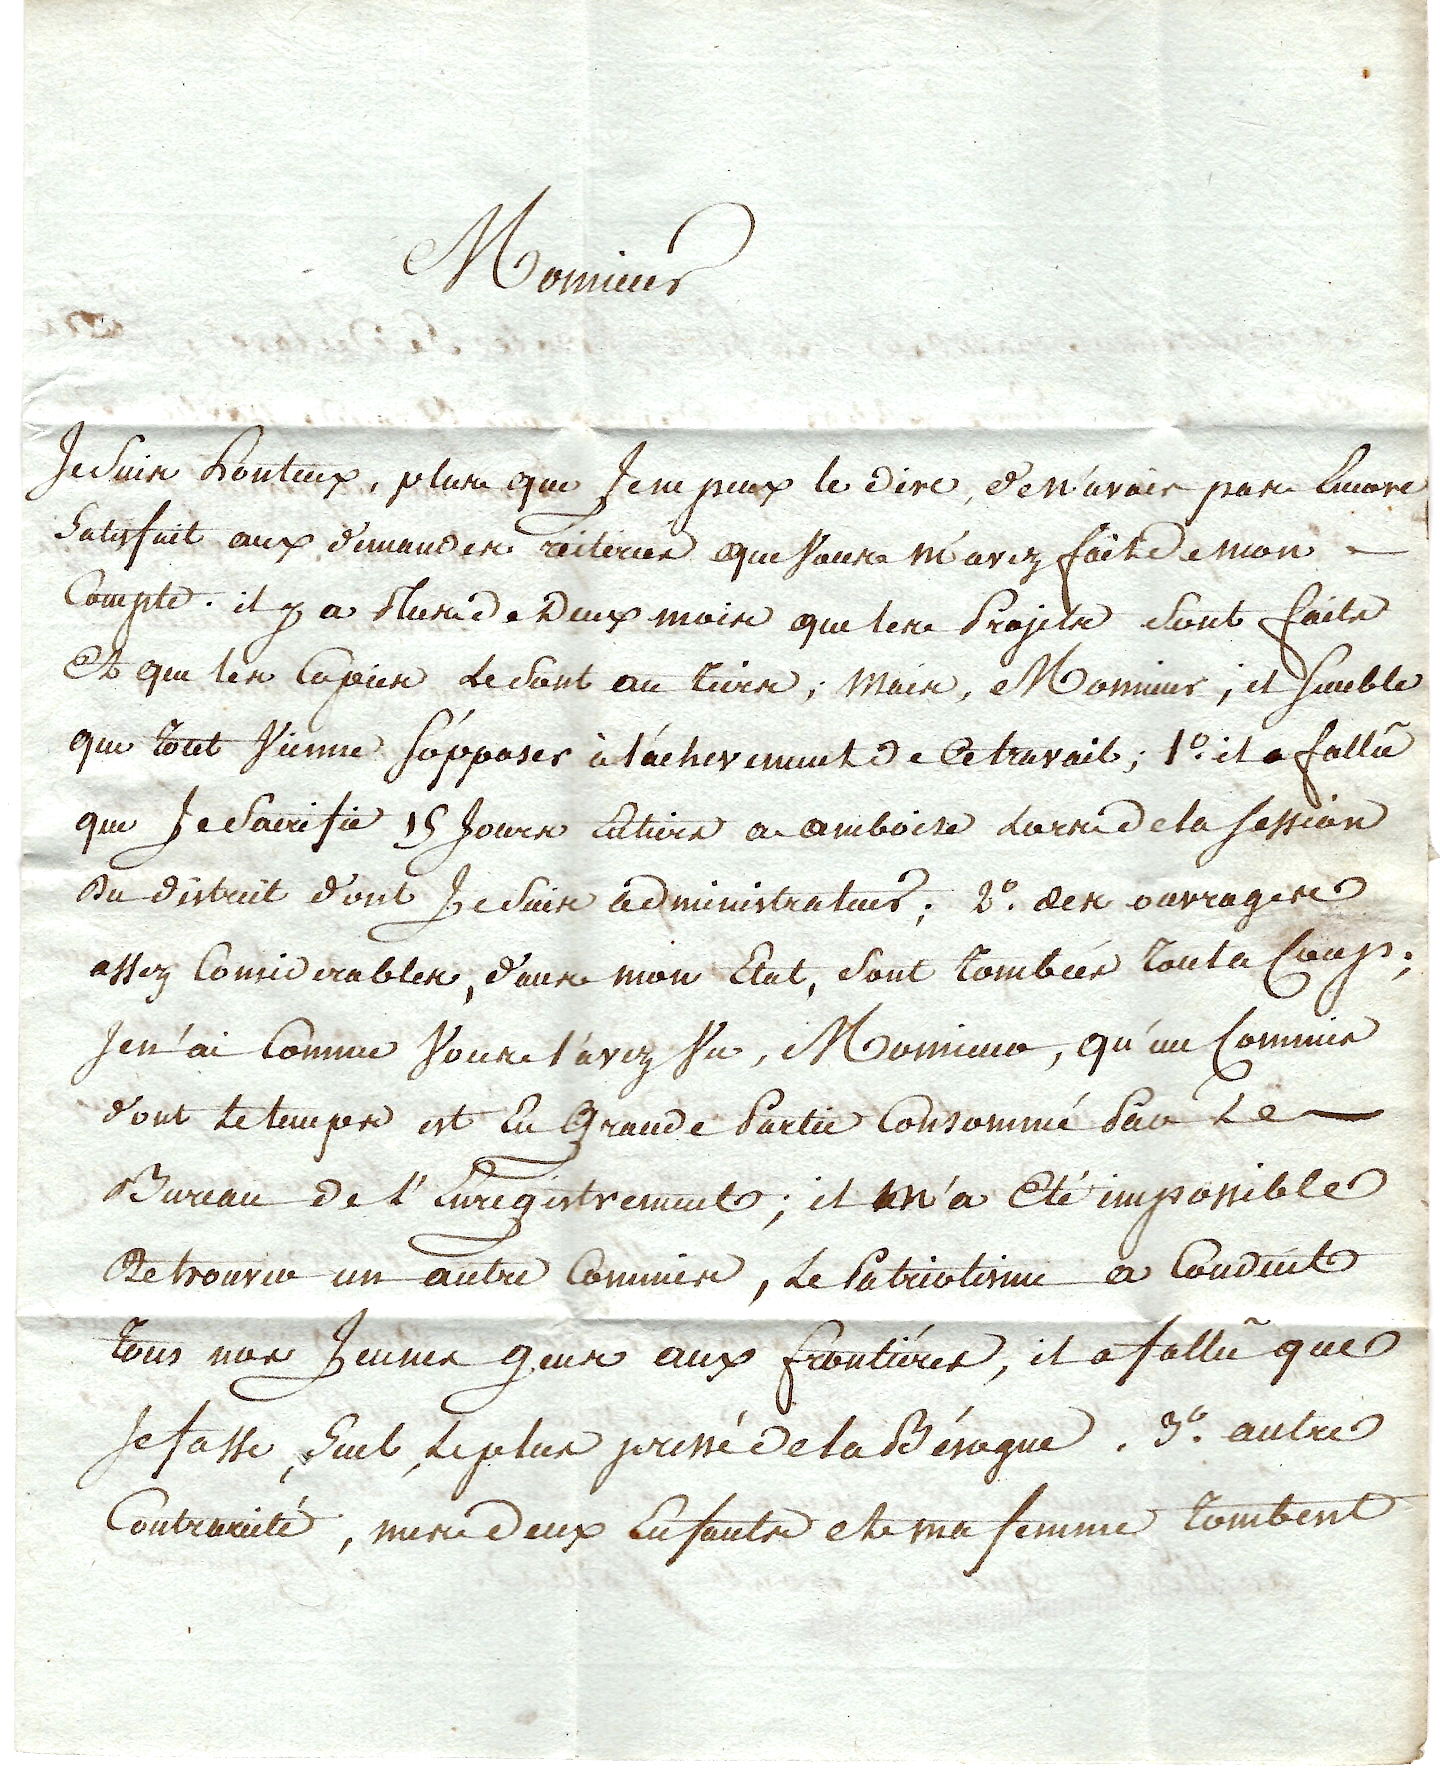 Monsieur
Je Suis honteux, plus que Je ne peux le dire, de n'avoir pas Encore
Satisfait aux demandes réiterées que Vous m'avez faite de mon
Compte. il y a Plus de Deux mois que les Projets Sont faits
Et que les Copies Le Sont au tiers ; Mais, Monsieur, il Semble
que tout Vienne S'opposer à l'achevement de Ce travail ; 1º. il a fallû
que Je Sacrifie 15 Jours Entiers a amboise Lors de la Session
Du district dont Je Suis administrateur ; 2º. des ouvrages
assez Considerables, dans mon Etat, Sont tombés tout a Coup ;
Je n'ai Comme Vous l'avez Vu, Monsieur, qu'un Commis
dont Le temps est En Grande Partie Consommé Par Le
Bureau de l'Enregistrement ; il m'a Eté impossible
De trouver un autre Commis, Le Patriotisme a Conduit
tous nos Jeunes gens aux frontiéres, il a fallû que
Je fasse, Seul, Le plus pressé de la Bésogne. 3º. autre
Contrarieté, mes deux Enfants et ma femme tombent